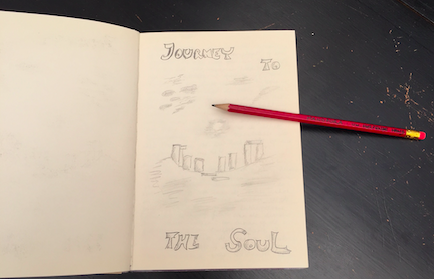 JOURNEY
TO
THE SOUL